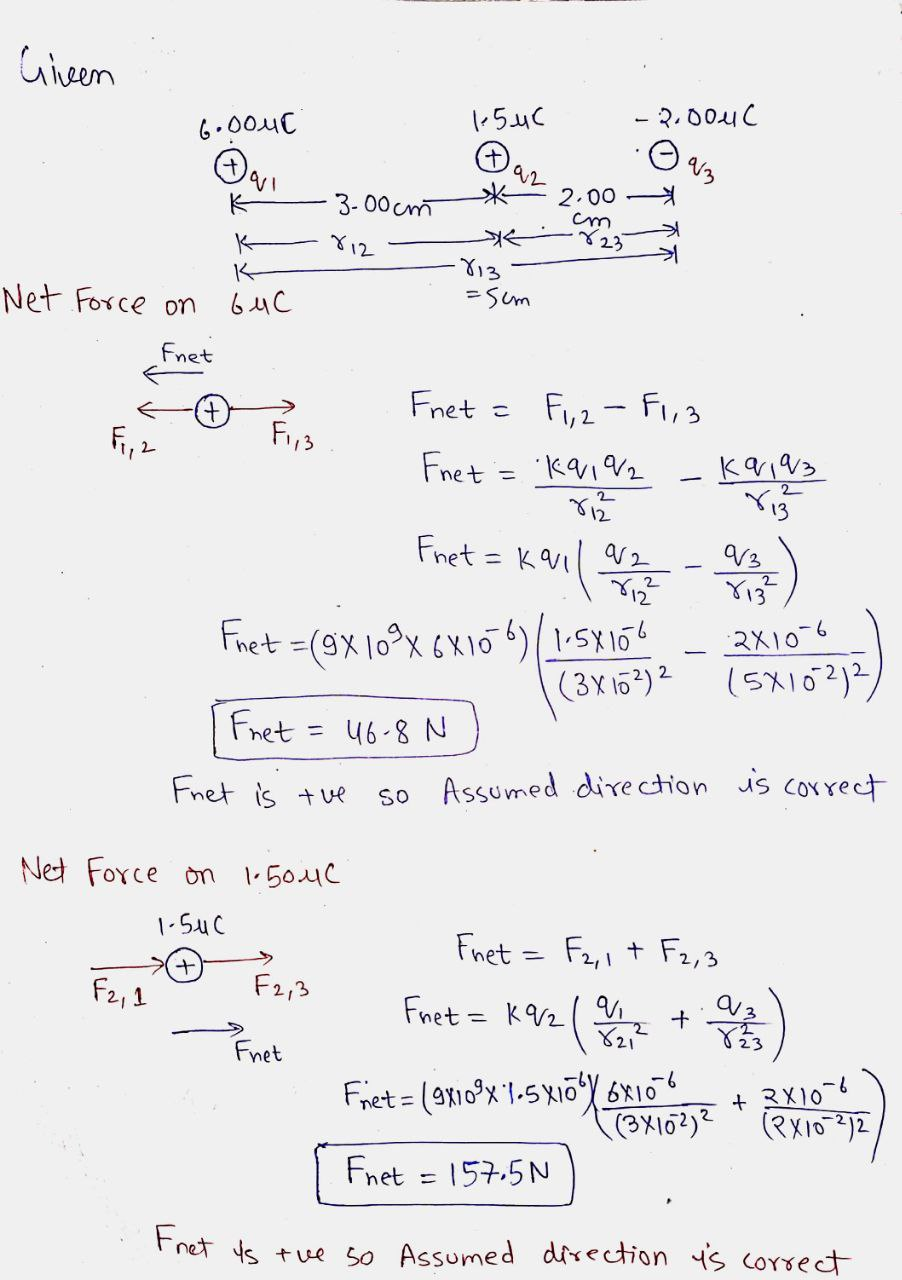 Given
6.00μC 1.5μC - 2.00μC
+ q1 + q2 - q3
3.00cm 2.00 cm
r12 r23
r13
= 5cm
Net Force on 6μC
Fnet
+
F1,2 F1,3
Fnet = F1,2 - F1,3
Fnet = Kq1q2/r12² - Kq1q3/r13²
Fnet = Kq1(q2/r12² - q3/r13²)
Fnet = (9×10⁹×6×10⁻⁶)(1.5×10⁻⁶/(3×10⁻²)² - 2×10⁻⁶/(5×10⁻²)²)
Fnet = 46.8 N
Fnet is +ve so Assumed direction is correct
Net Force on 1.50μC
1.5μC
+
F2,1 F2,3
Fnet
Fnet = F2,1 + F2,3
Fnet = Kq2(q1/r21² + q3/r23²)
Fnet = (9×10⁹×1.5×10⁻⁶)(6×10⁻⁶/(3×10⁻²)² + 2×10⁻⁶/(2×10⁻²)²)
Fnet = 157.5N
Fnet is +ve so Assumed direction is correct